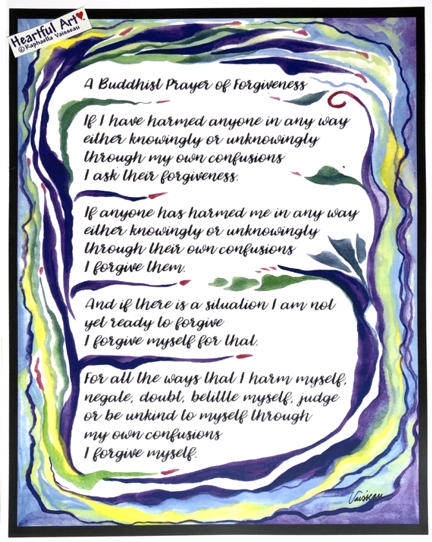 Heartful Art
© Raphaella Vaisseau
A Buddhist Prayer of Forgiveness
If I have harmed anyone in any way
either knowingly or unknowingly
through my own confusions
I ask their forgiveness.
If anyone has harmed me in any way
either knowingly or unknowingly
through their own confusions
I forgive them.
And if there is a situation I am not
yet ready to forgive
I forgive myself for that.
For all the ways that I harm myself,
negate, doubt, belittle myself, judge
or be unkind to myself through
my own confusions
I forgive myself.
Vaisseau